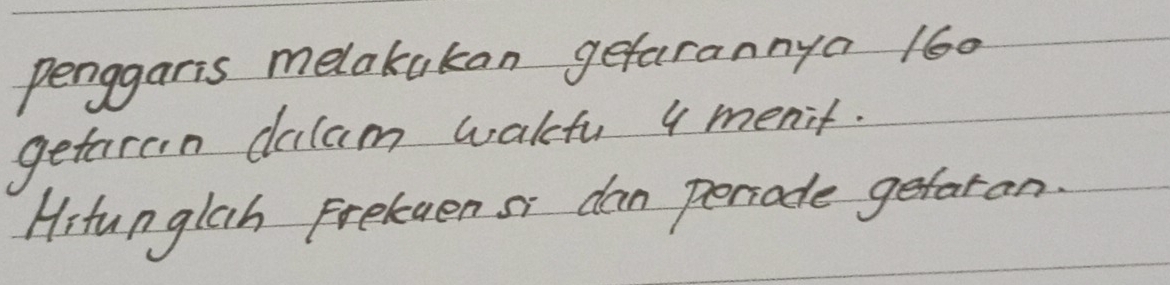 penggaris melakukan getarannya 160
getaran dalam waktu 4 menit.
Hitunglah Frekuensi dan periode getaran.